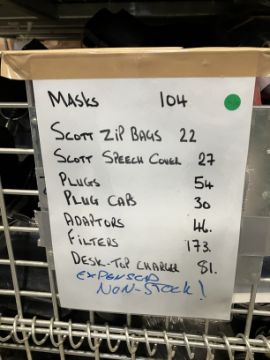 MASKS 104
SCOTT ZIP BAGS 22
SCOTT SPEECH COVER 27
PLUGS 54
PLUG CAPS 30
ADAPTORS 46.
FILTERS 173.
DESK-TOP CHARGER 81.
EXPENSED
NON-STOCK!